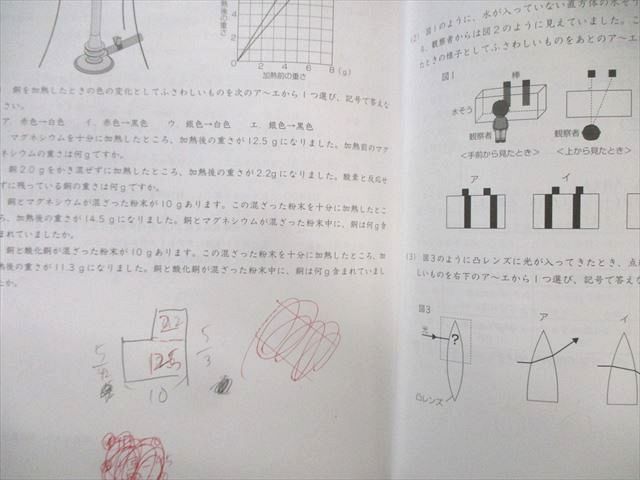 後の重さ
4
2
0
0 2 4 6 8 (g)
加熱前の重さ
銅を加熱したときの色の変化としてふさわしいものを次のア〜エから1つ選び、記号で答えな
さい。
ア．赤色→白色 イ．赤色→黒色 ウ．銀色→白色 エ．銀色→黒色
マグネシウムを十分に加熱したところ、加熱後の重さが12.5gになりました。加熱前のマグ
ネシウムの重さは何gですか。
銅2.0gをかき混ぜずに加熱したところ、加熱後の重さが2.2gになりました。酸素と反応せ
ずに残っている銅の重さは何gですか。
銅とマグネシウムが混ざった粉末が10gあります。この混ざった粉末を十分に加熱したとこ
ろ、加熱後の重さが14.5gになりました。銅とマグネシウムが混ざった粉末中に、銅は何g含
まれていましたか。
銅と酸化銅が混ざった粉末が10gあります。この混ざった粉末を十分に加熱したところ、加
熱後の重さが11.3gになりました。銅と酸化銅が混ざった粉末中に、銅は何g含まれていまし
たか。
5
3
10
(2) 図1のように、水が入っていない直方体の水そ
観察者からは図2のように見えていました。こ
たときの様子としてふさわしいものをあとのア〜エ
図1
棒
水そう
観察者
観察者
<手前から見たとき>
<上から見たとき>
ア
イ
(3) 図3のように凸レンズに光が入ってきたとき、点
しいものを右下のア〜エから1つ選び、記号で答えな
図3
光
?
凸レンズ
ア
イ